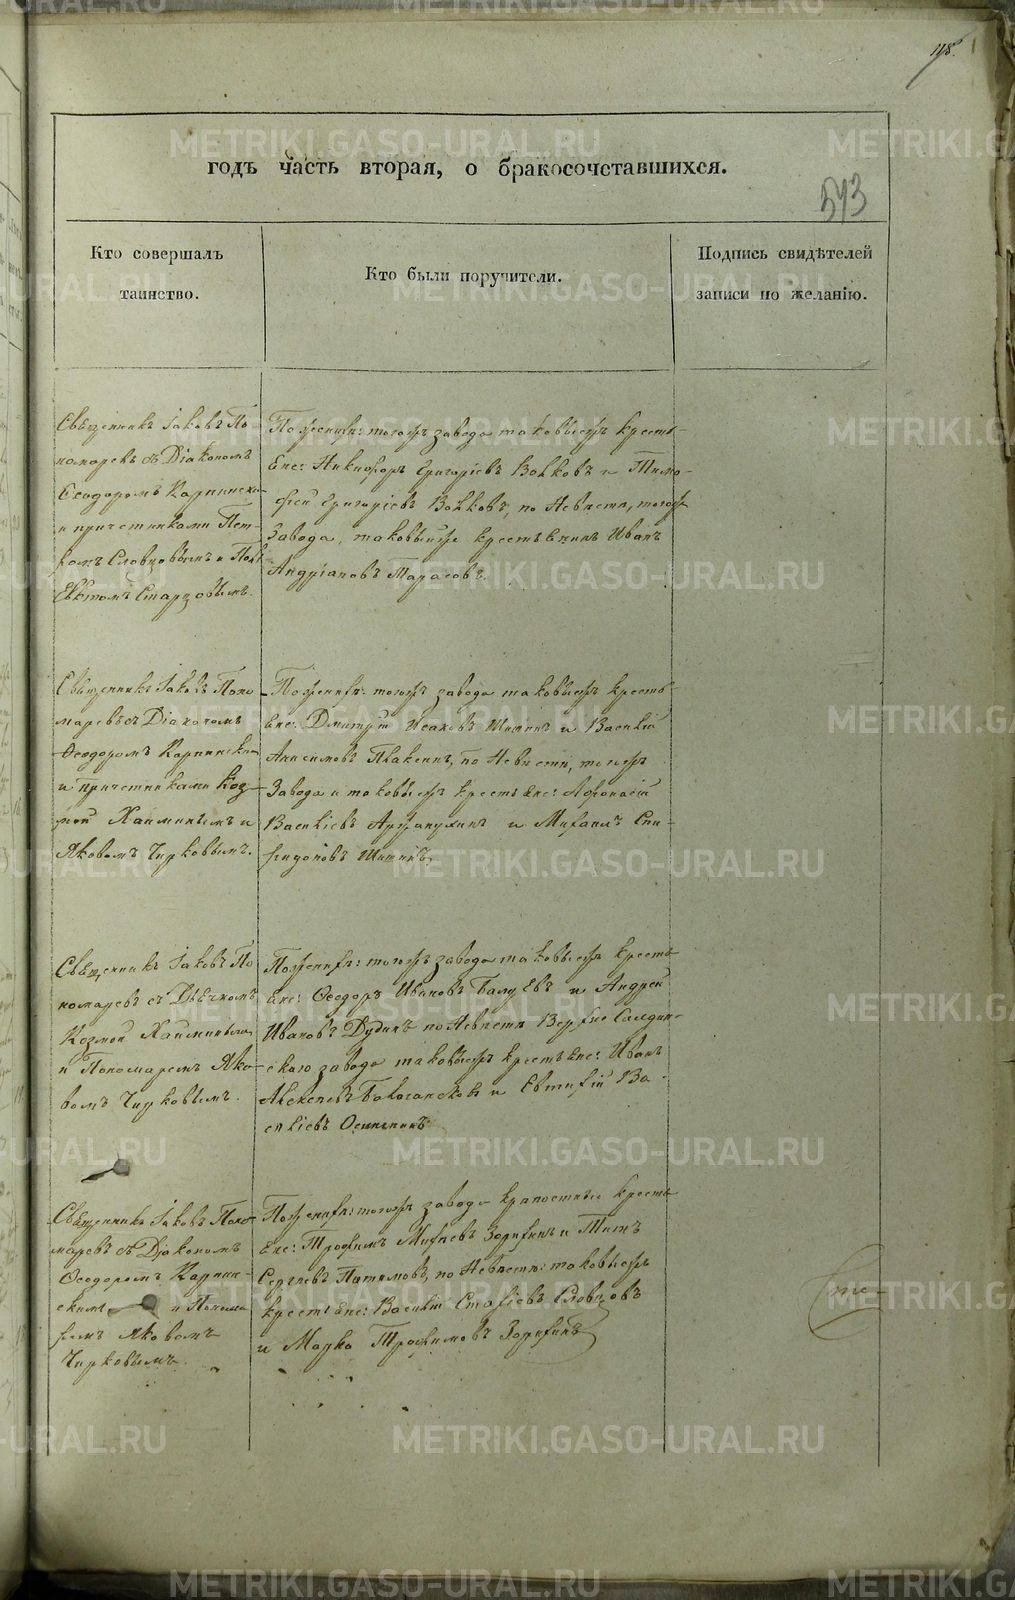 118.
годъ часть вторая, о бракосочетавшихся.
573
Кто совершалъ
таинство.
Кто были поручители.
Подпись свидѣтелей
записи по желанію.
Священникъ Іаковъ По-
номаревъ съ Діакономъ
Ѳеодоромъ Карпински-
и причетниками Пет-
ромъ Словцовымъ и
Старцовымъ.
По женихѣ: тогожъ завода таковыежъ кресть-
яне: Никифоръ Григорьевъ Волковъ и Тимо-
фей Григорьевъ Волковъ, по невѣстѣ, тогожъ
завода, таковыйже крестьянинъ Иванъ
Андріановъ Тарасовъ.
Священникъ Іаковъ Поно-
маревъ съ Діакономъ
Ѳеодоромъ Карпински-
и причетниками Коз-
мой Хаминымъ и
Яковомъ Чирковымъ.
По женихѣ: тогожъ завода таковыежъ кресть-
яне: Дмитрій Исаковъ Шишинъ и Василій
Анисимовъ по невѣстѣ, тогожъ
завода и таковыежъ крестьяне: Афонасій
Васильевъ и Михаилъ Спи-
ридоновъ Шишинъ.
Священникъ Іаковъ По
номаревъ съ Дьячкомъ
Козмой
и Пономаремъ Яко-
вомъ Чирковымъ.
По женихѣ: тогожъ завода таковыежъ кресть
яне: Ѳеодоръ Ивановъ Балуевъ и Андрей
Ивановъ Дудинъ по невѣстѣ Верхне Салдин-
скаго завода таковыежъ крестьяне: Иванъ
Алексѣевъ и Евтихій Ва-
сильевъ
Священникъ Іаковъ Поно-
маревъ съ Діакономъ
Ѳеодоромъ Карпин-
скимъ и Понома
ремъ Яковомъ
Чирковымъ.
По женихѣ: тогожъ завода кресть
яне: Трофимъ Зорихинъ и Титъ
Сергѣевъ по невѣстѣ: таковыежъ
крестьяне: Василій Словцовъ
и Марко Трофимовъ Зорихинъ
METRIKI.GASO-URAL.RU